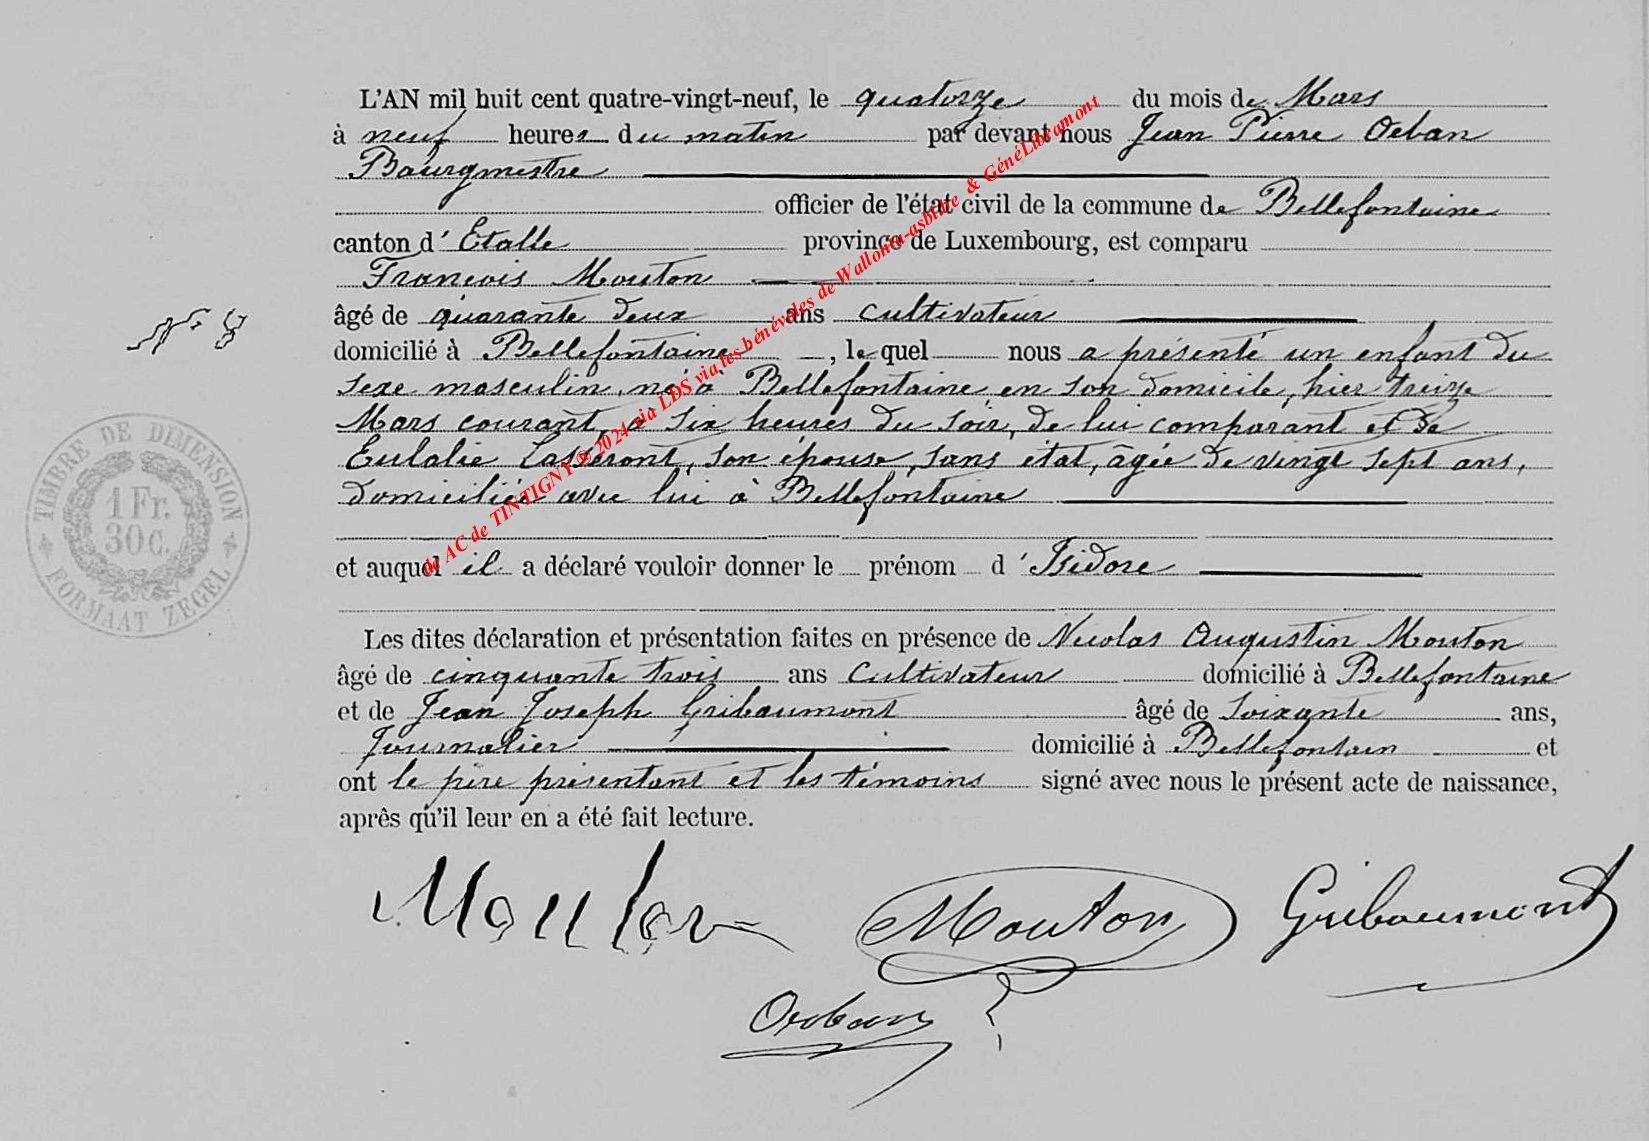 L'AN mil huit cent quatre-vingt-neuf, le quatorze du mois de Mars
à neuf heures du matin par devant nous Jean Pierre Orban
Bourgmestre
officier de l'état civil de la commune de Bellefontaine
canton d' Etalle province de Luxembourg, est comparu
François Mouton
âgé de quarante deux ans cultivateur
N° 8
domicilié à Bellefontaine, lequel nous a présenté un enfant du
sexe masculin, né à Bellefontaine, en son domicile, hier treize
Mars courant, à six heures du soir, de lui comparant et de
Eulalie Lasseront, son épouse, sans état, âgée de vingt sept ans,
domiciliée avec lui à Bellefontaine
et auquel il a déclaré vouloir donner le prénom d' Isidore
Les dites déclaration et présentation faites en présence de Nicolas Augustin Mouton
âgé de cinquante trois ans Cultivateur domicilié à Bellefontaine
et de Jean Joseph Gribaumont âgé de Soixante ans,
Journalier domicilié à Bellefontain et
ont le père présentant et les témoins signé avec nous le présent acte de naissance,
après qu'il leur en a été fait lecture.
Mouton Mouton Gribaumont
Orban
TIMBRE DE DIMENSION
1 Fr.
30 C.
FORMAAT ZEGEL
de AC de TINTIGNY ® 2024 via LDS via les bénévoles de Wallonia-asbl & GénéLibramont